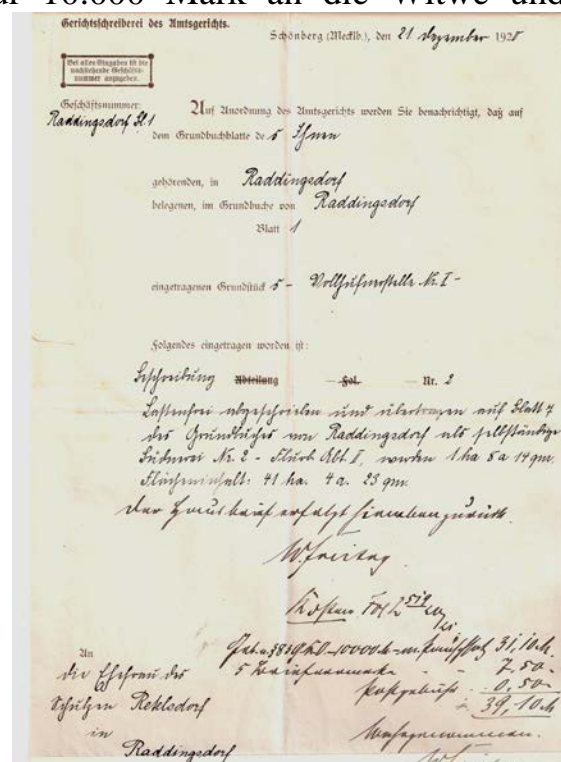 ur 10.000 Mark an die Witwe und
Gerichtsschreiberei des Amtsgerichts.
Schönberg (Mecklb.), den 21 Dezember 1920
Bei allen Eingaben ist die
nachstehende Geschäfts-
nummer anzugeben.
Geschäftsnummer:
Raddingsdorf Bl. 1
Auf Anordnung des Amtsgerichts werden Sie benachrichtigt, daß auf
dem Grundbuchblatte des Ihnen
gehörenden, in Raddingsdorf
belegenen, im Grundbuche von Raddingsdorf
Blatt 1
eingetragenen Grundstücks - Vollhufnerstelle Nr. I -
Folgendes eingetragen worden ist:
Beschreibung Abteilung - Fol. - Nr. 2
Lastenfrei abgeschrieben und übertragen auf Blatt 7
des Grundbuches von Raddingsdorf als selbständige
Büdnerei Nr. 2 - Flurb. Abt. II, worden 1 ha 8 a 14 qm.
Flächeninhalt: 41 ha. 4 a. 23 qm.
Der Hausbrief erfolgt hierneben zurück.
W. Freitag
Kosten
10000 M 31,10 M.
5 Briefvermerke - - 7.50 -
Postgebühr - 0,50 -
39,10 M
An
die Ehefrau des
Schulzen Retelsdorf
in
Raddingsdorf